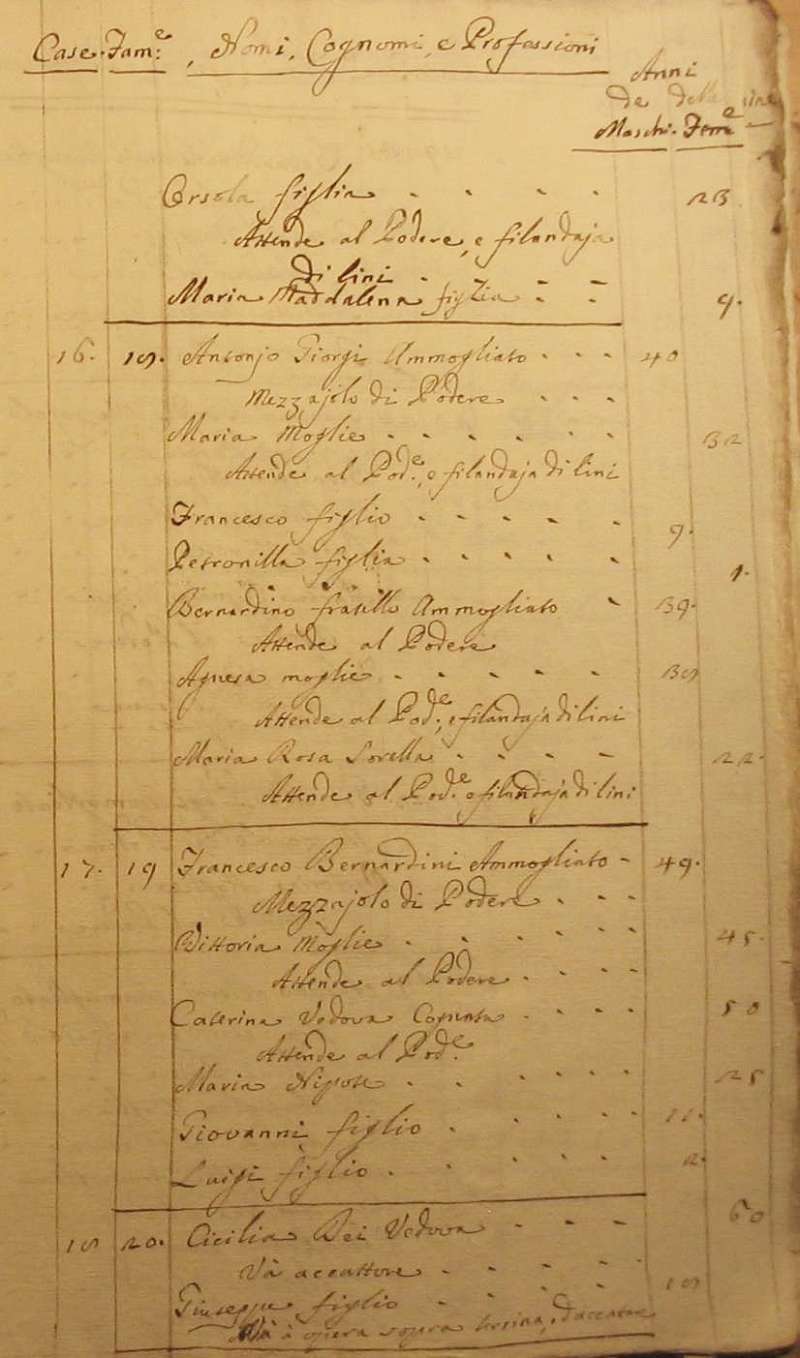 Case. Fam.e, Nomi, Cognomi, e Professioni
Anni
de
Maschi. Fem.e
Orsola figlia 23
Attende al Podere, e filandaja
di lini
Maria Maddalena figlia 9.
16. 18. Antonjo Giorgi Ammogliato 40
Mezzajolo di Podere
Maria Moglie 32
Attende al Pod.e, e filandaja di lini
Francesco figlio 9.
Petronilla figlia 1.
Bernardino fratello Ammogliato 39.
Attende al Podere
Agnesa moglie 38
Attende al Pod.e, e filandaja di lini
Maria Rosa Sorella 22.
Attende al Pod.e e filandaja di lini
17. 19 Francesco Bernardini Ammogliato 49.
Mezzajolo di Podere
Vittoria Moglie 45.
Attende al Podere
Caterina Vedova Cognata 50
Attende al Pod.e
Maria Nipote 25
Giovanni figlio 11.
Luigi figlio 2.
18 20. Cicilia Bei Vedova 60
Và accattare
Giuseppe figlio 18
Và à opera